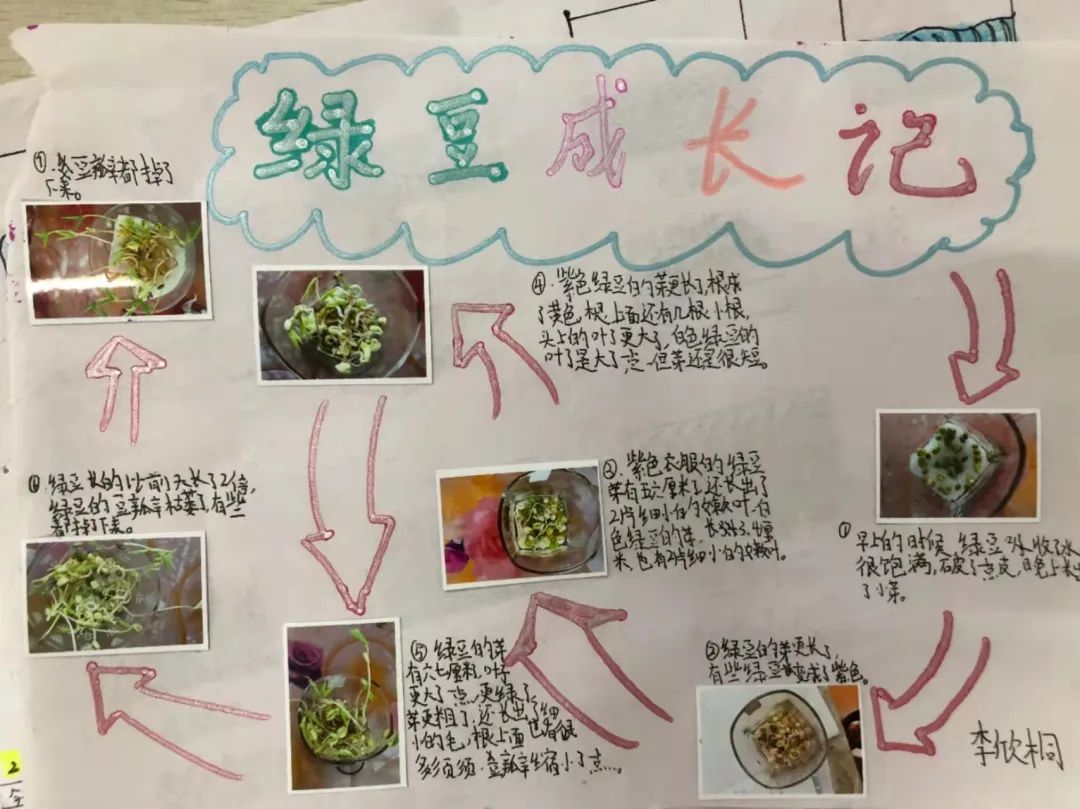 绿豆成长记
①早上的时候,绿豆吸收了水
很饱满,破了点皮,晚上长出
了小芽。
②绿豆的芽更长了,
有些绿豆变成了紫色。
③紫色衣服的绿豆
芽有五六厘米了,还长出了
2片细小的嫩叶,白
色绿豆的芽,长出3、4厘
米,也有2片细小的嫩叶。
④紫色绿豆的芽更长了,根成
了黄色,根上面还有几根小根,
头上的叶子更大了,白色绿豆的
叶子是大了点,但芽还是很短。
⑤绿豆的芽
有六七厘米,叶子
更大了点,更绿了,
芽更粗了,还长出了细
小的毛,根上面也有很
多须须,豆瓣缩小了点……。
⑥绿豆长的比前天长了2倍,
绿豆的豆瓣枯萎了,有些
都掉了下来。
⑦豆瓣都掉了
下来。
李欣桐
2